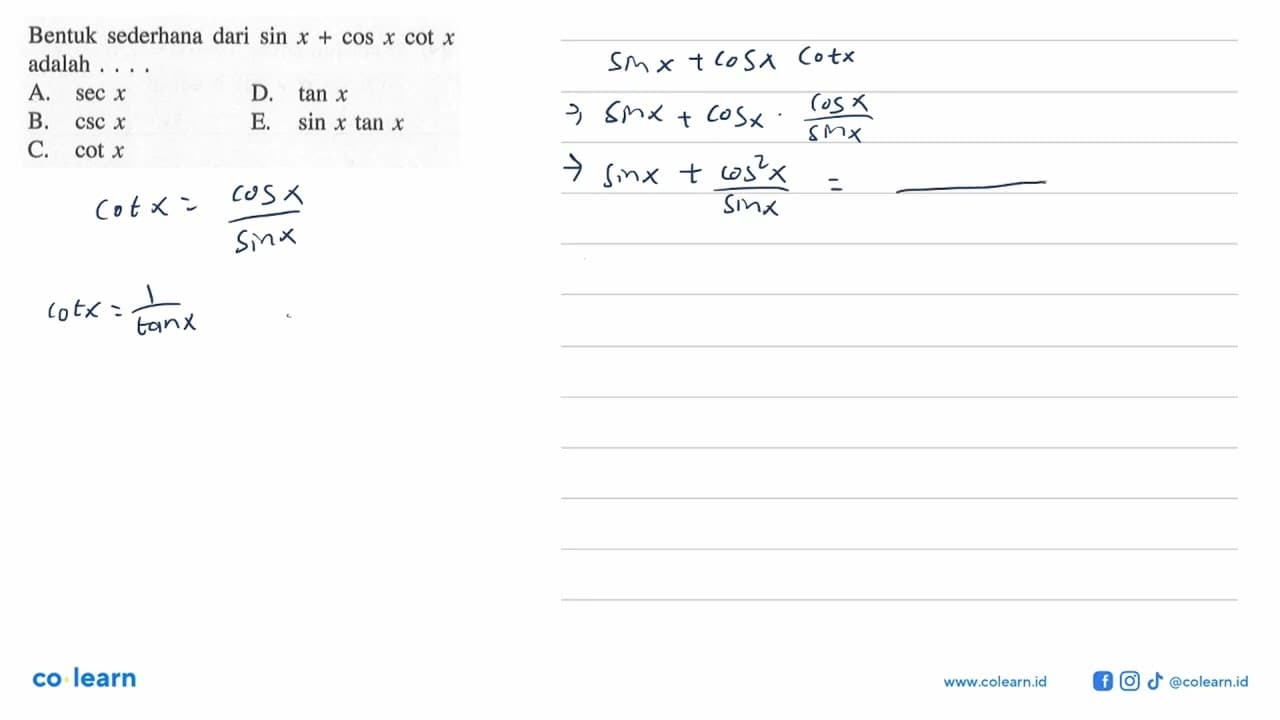 Bentuk sederhana dari sin x + cos x cot x
adalah . . . .
A. sec x D. tan x
B. csc x E. sin x tan x
C. cot x
cot x = cos x / sin x
cot x = 1 / tan x
sin x + cos x cot x
⇒ sin x + cos x · cos x / sin x
→ sin x + cos² x / sin x =
co·learn
www.colearn.id
@colearn.id